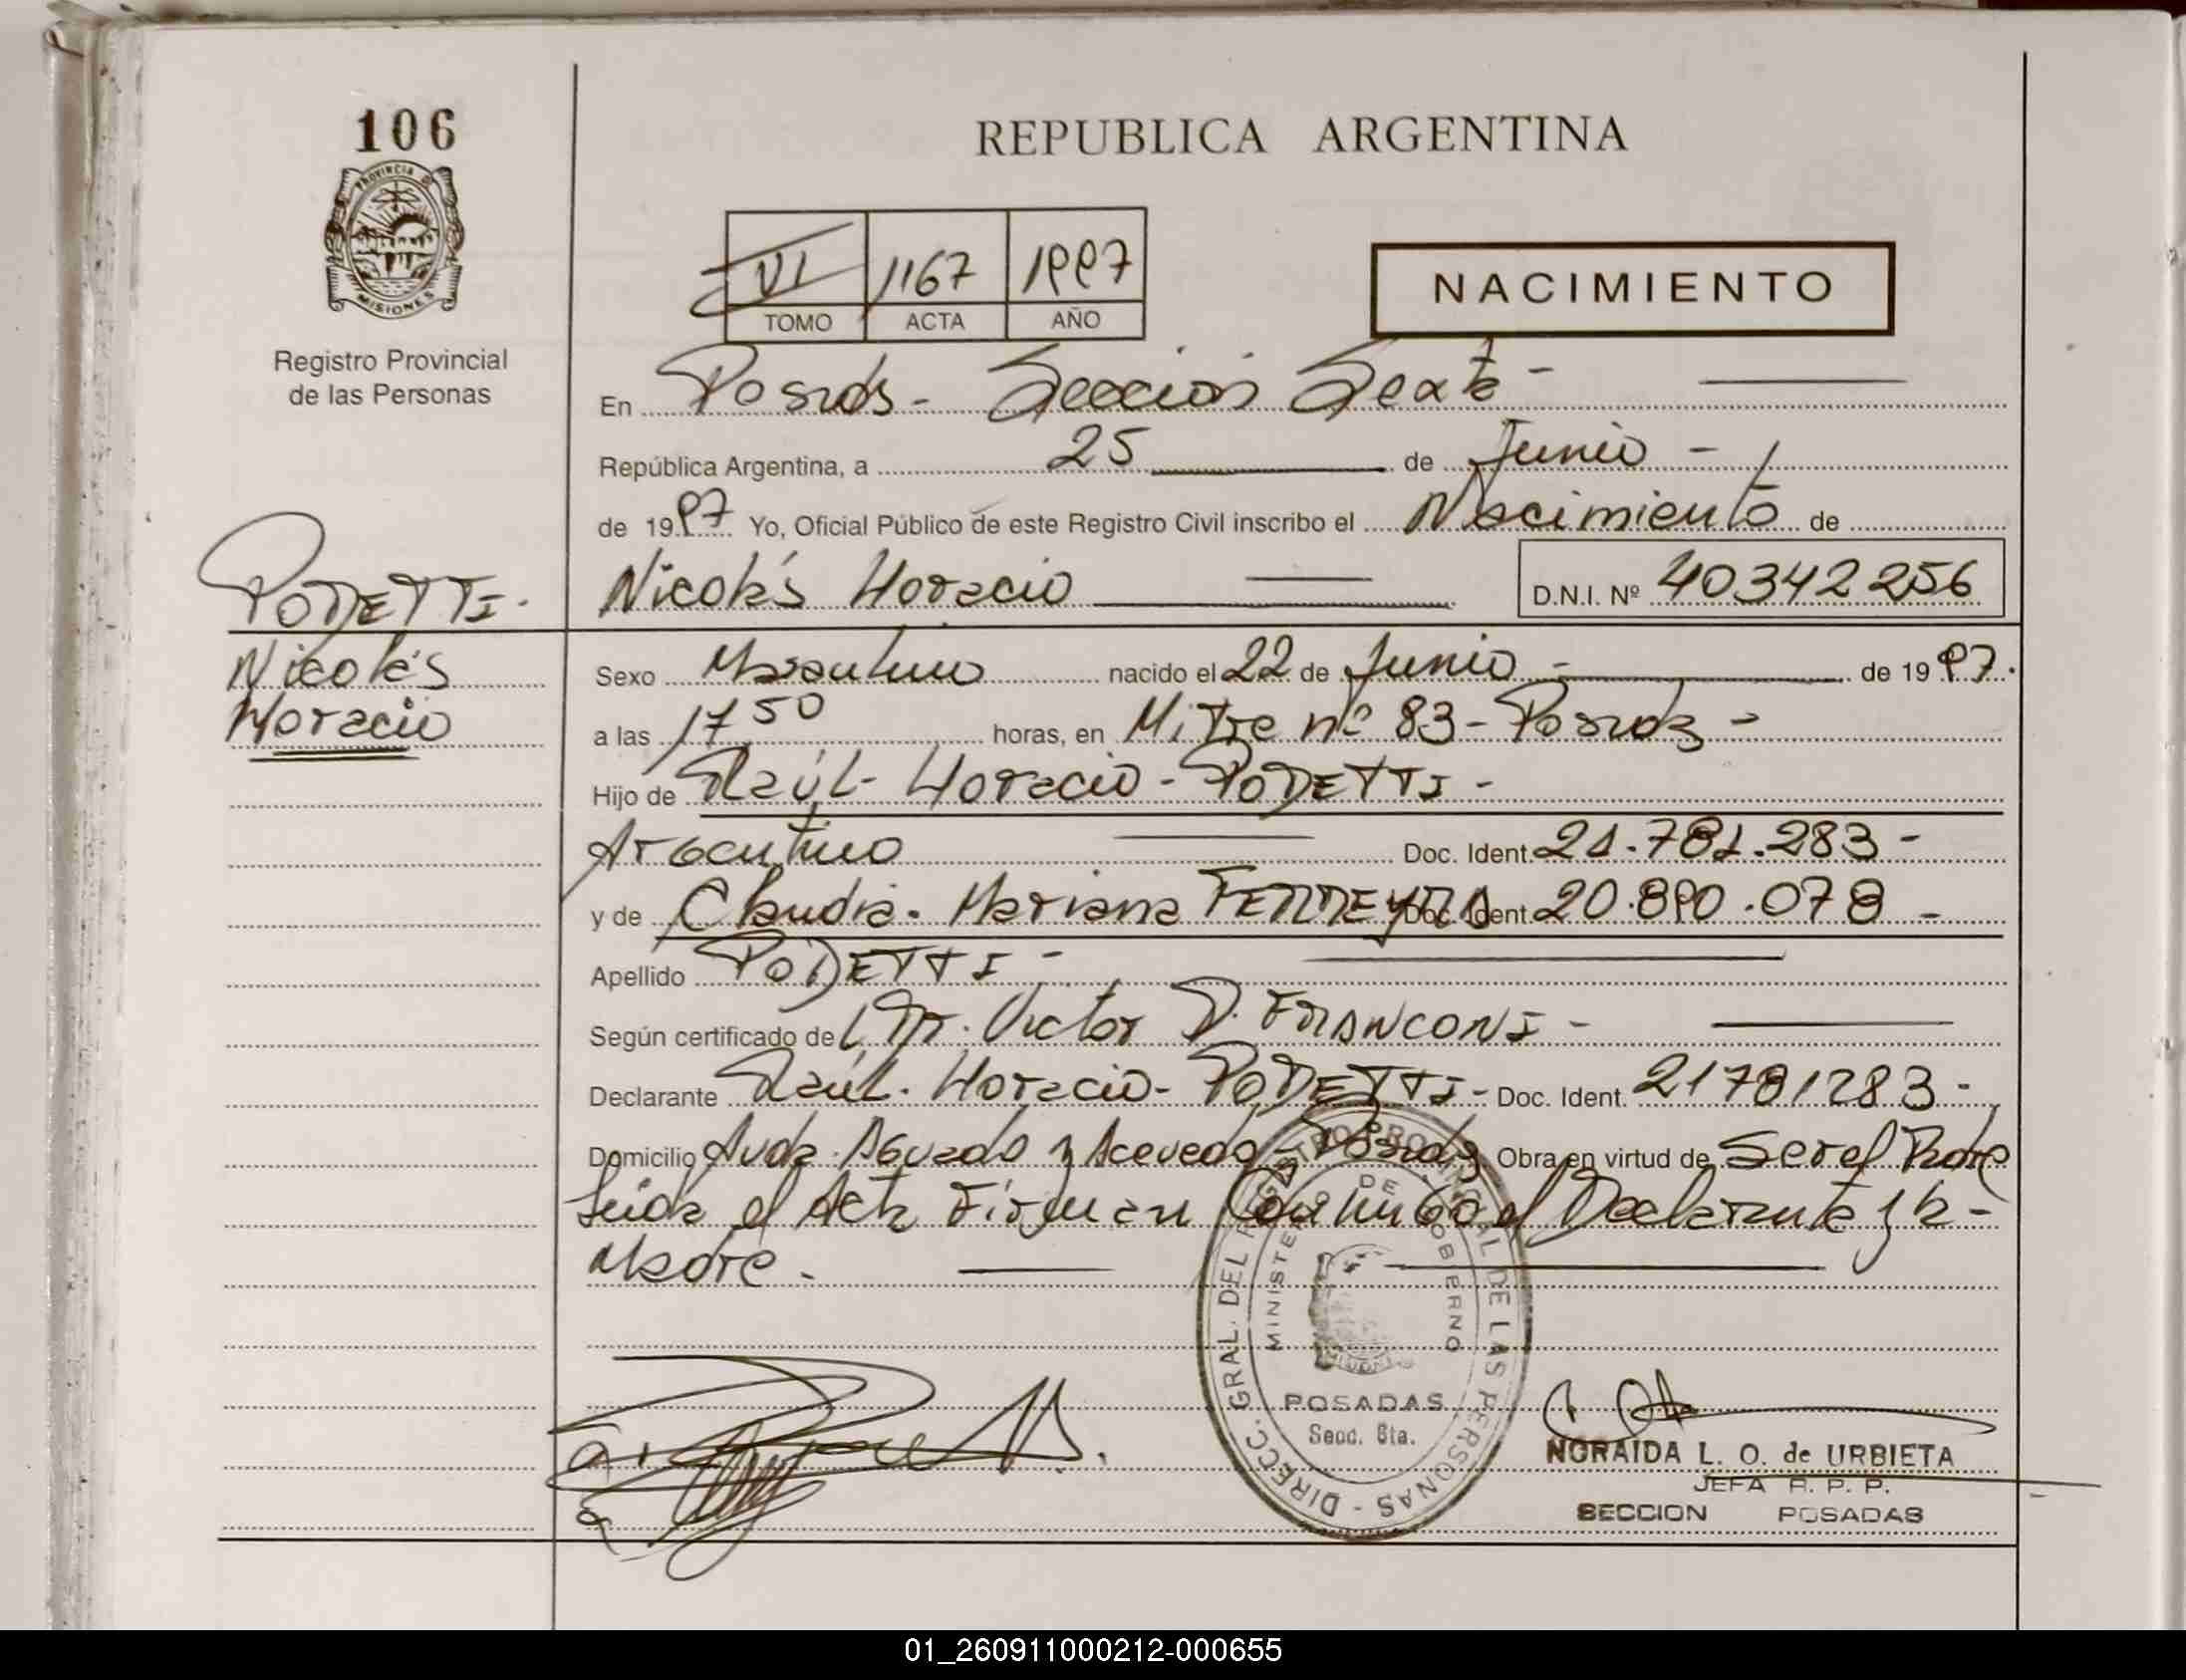 106
REPUBLICA ARGENTINA
PROVINCIA D
MISIONES
Registro Provincial
de las Personas
VI 1167 1997
TOMO ACTA AÑO
NACIMIENTO
En Posadas - Sección Sexta -
República Argentina, a 25 de Junio -
de 1997 Yo, Oficial Público de este Registro Civil inscribo el Nacimiento de
Nicolás Horacio D.N.I. Nº 40342256
PODETTI -
Nicolás
Horacio
Sexo Masculino nacido el 22 de Junio - de 1997.
a las 17 50 horas, en Mitre nº 83 - Posadas -
Hijo de Raúl - Horacio - PODETTI -
Argentino Doc. Ident. 21.781.283 -
y de Claudia - Mariana FERREYRA Doc. Ident. 20.890.078 -
Apellido PODETTI -
Según certificado del Dr. Victor D. FRANCONI -
Declarante Raúl - Horacio - PODETTI - Doc. Ident. 21781283 -
Domicilio Avda. Aguado y Acevedo - Posadas Obra en virtud de Ser el Padre
Leida el Acta Firman Conmigo el Declarante y la -
Madre -
DIRECC. GRAL. DEL REGISTRO PROVINCIAL DE LAS PERSONAS -
MINISTERIO DE GOBIERNO
POSADAS
Secc. 6ta.
NORAIDA L. O. de URBIETA
JEFA R. P. P.
SECCION POSADAS
01_260911000212-000655